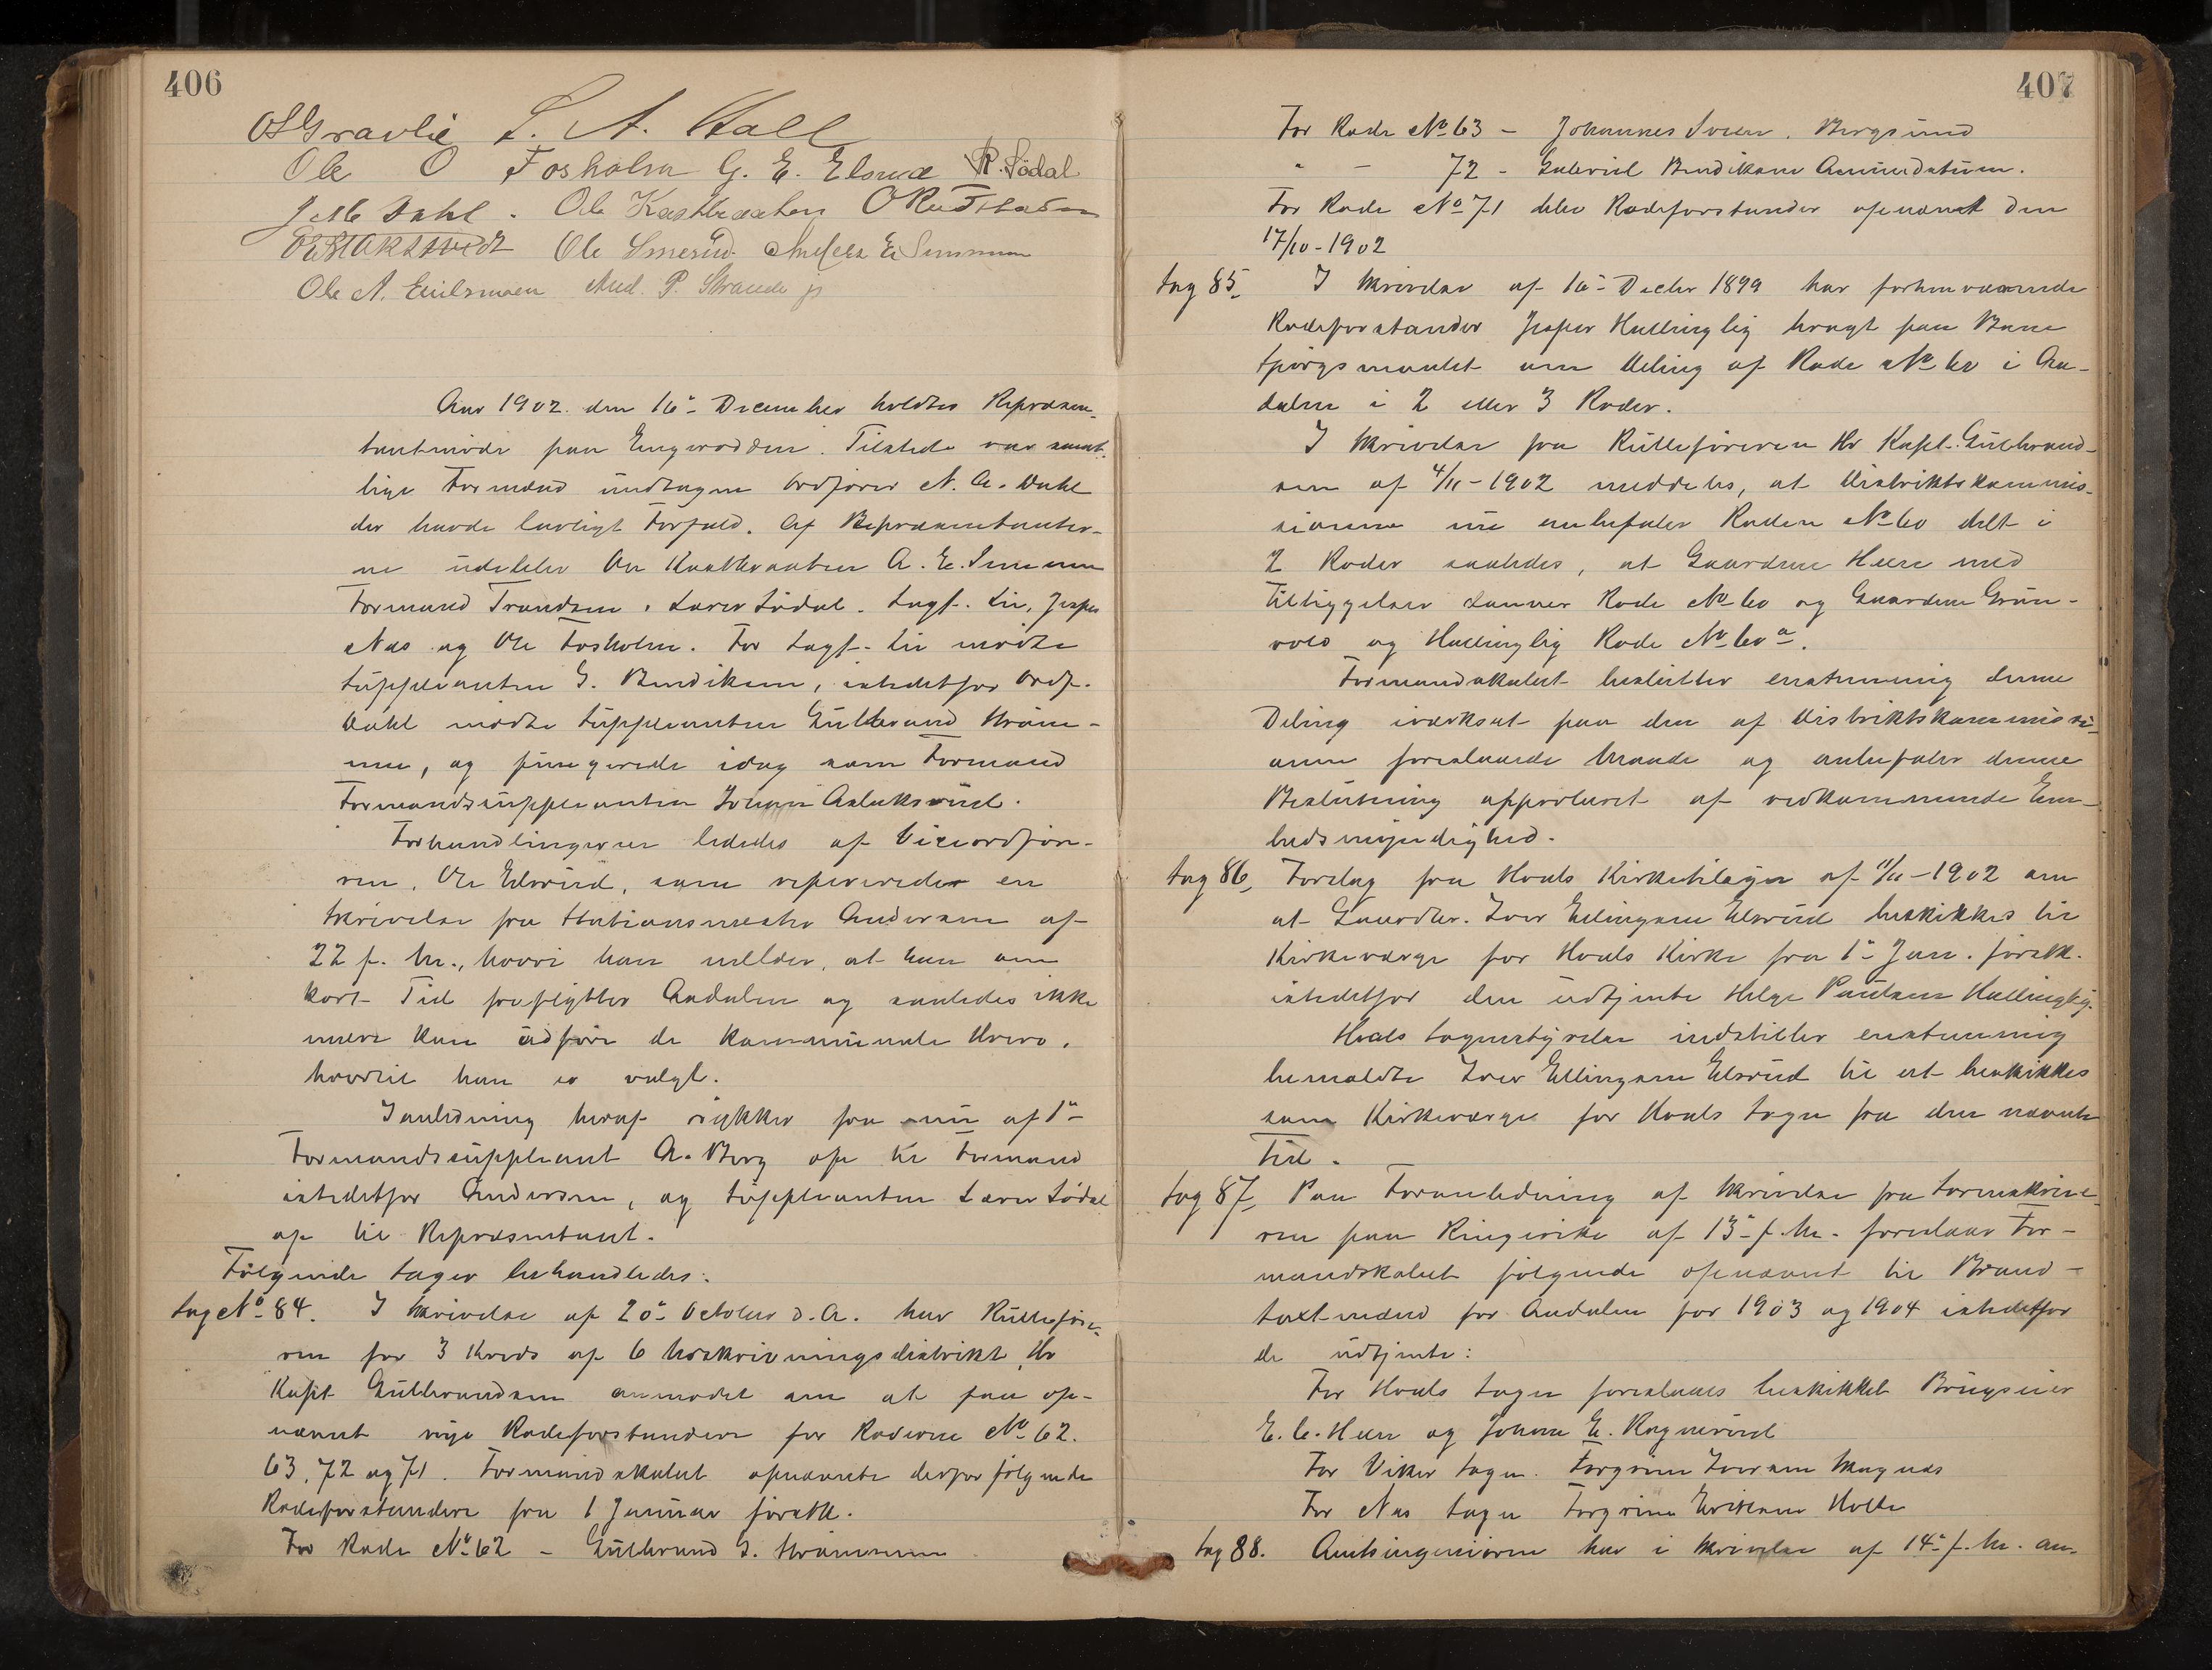 406
O S Gravlie L. A. Hall
Ole O Fosholm G. E. Elsrud R. Södal
J. M. Dahl. Ole Kastbraaten O Rustbaden
Ole Smerud. Anders E. Simensen
Ole A. Eivilsmoen And. P. Strande jr
Aar 1902 den 16de December holdtes Repræsen-
tantmöde paa Engerodden. Tilstede var samt-
lige Formænd undtagen Ordförer N. A. Dahl
der havde lovligt Forfald. Af Repræsentanter-
ne udeblev Ole Kastbraaten A. E. Simensen
Formand Trondsen, Lærer Södal. Sagf. Lie, Jesper
Næs og Ole Fosholm. For Sagf. Lie mödte
Suppleanten G. Bendiksen, istedetfor Ordf.
Dahl mödte Suppleanten Gulbrand Ström-
men, og fungerede idag som Formand
Formandssuppleanten Johan Aslaksrud.
Forhandlingerne lededes af Viceordföre-
ren, Ole Elsrud, som refererede en
Skrivelse fra Stationsmester Andersen af
22 f. M., hvori han melder, at han om
kort Tid fraflytter Aadalen og saaledes ikke
mere kan udföre de kommunale Hverv,
hvortil han er valgt.
I anledning heraf rykker fra nu af 1ste
Formandssuppleant A. Berg op til Formand
istedetfor Andersen, og Suppleanten Lærer Södal
op til Repræsentant.
Fölgende Sager behandledes:
Sag No 84. I Skrivelse af 20de October d. A. har Rulleföre-
ren for 3 Kreds af 6 Udskrivningsdistrikt, Hr
Kapt Gulbrandsen anmodet om at faa op-
nævnt nye Rodeforstandere for Roderne No 62.
63, 72 og 71. Formandskabet opnævnte derfor fölgende
Rodeforstandere fra 1 Januar förstk.
For Rode No 62 - Gulbrand G. Strömmen
407
For Rode No 63 - Johannes Iversen, Bergsund
" - 72 - Gabriel Bendiksen Aamundstuen.
For Rode No 71 blev Rodeforstander opnævnt den
17/10-1902
Sag 85, I Skrivelse af 16de Decbr 1899 har forhenværende
Rodeforstander Jesper Hallinglig bragt paa Bane
Spörgsmaalet om Deling af Rode No 60 i Aa-
dalen i 2 eller 3 Roder.
I Skrivelse fra Rulleföreren Hr Kapt. Gulbrand-
sen af 4/11-1902 meddeles, at Distriktskommis-
sionen nu anbefaler Roden No 60 delt i
2 Roder saaledes, at Gaardene Heen med
Tilliggelser danner Rode No 60 og Gaardene Grön-
vold og Hallinglig Rode No 60 a.
Formandskabet beslutter enstemmig denne
Deling iværksat paa den af Distriktskommissi-
onen foreslaaede Maade og anbefaler denne
Beslutning approberet af vedkommende Em-
bedsmyndighed.
Sag 86, Forslag fra Hvals Kirketilsyn af 11/11-1902 om
at Gaardbr. Iver Ellingsen Elsrud beskikkes til
Kirkeværge for Hvals Kirke fra 1ste Jan. förstk.
istedetfor den udtjente Helge Paulsen Hallinglig.
Hvals Sognestyrelse indstiller enstemmig
bemeldte Iver Ellingsen Elsrud til at beskikkes
som Kirkeværge for Hvals Sogn fra den nævnte
Tid.
Sag 87, Paa Foranledning af Skrivelse fra Sorenskrive-
ren paa Ringerike af 13de f. M. foreslaar For-
mandskabet fölgende opnævnt til Brand-
taxtmænd for Aadalen for 1903 og 1904 istedetfor
de udtjente:
For Hvals Sogn foreslaaes beskikket Brugseier
E. C. Heen og Johan E. Ragnerud
For Viker Sogn. Torgrim Iversen Skagnæs
For Næs Sogn Torgrim Eriksen Holte
Sag 88. Amtsingeniören har i Skrivelse af 14de f. M. an-